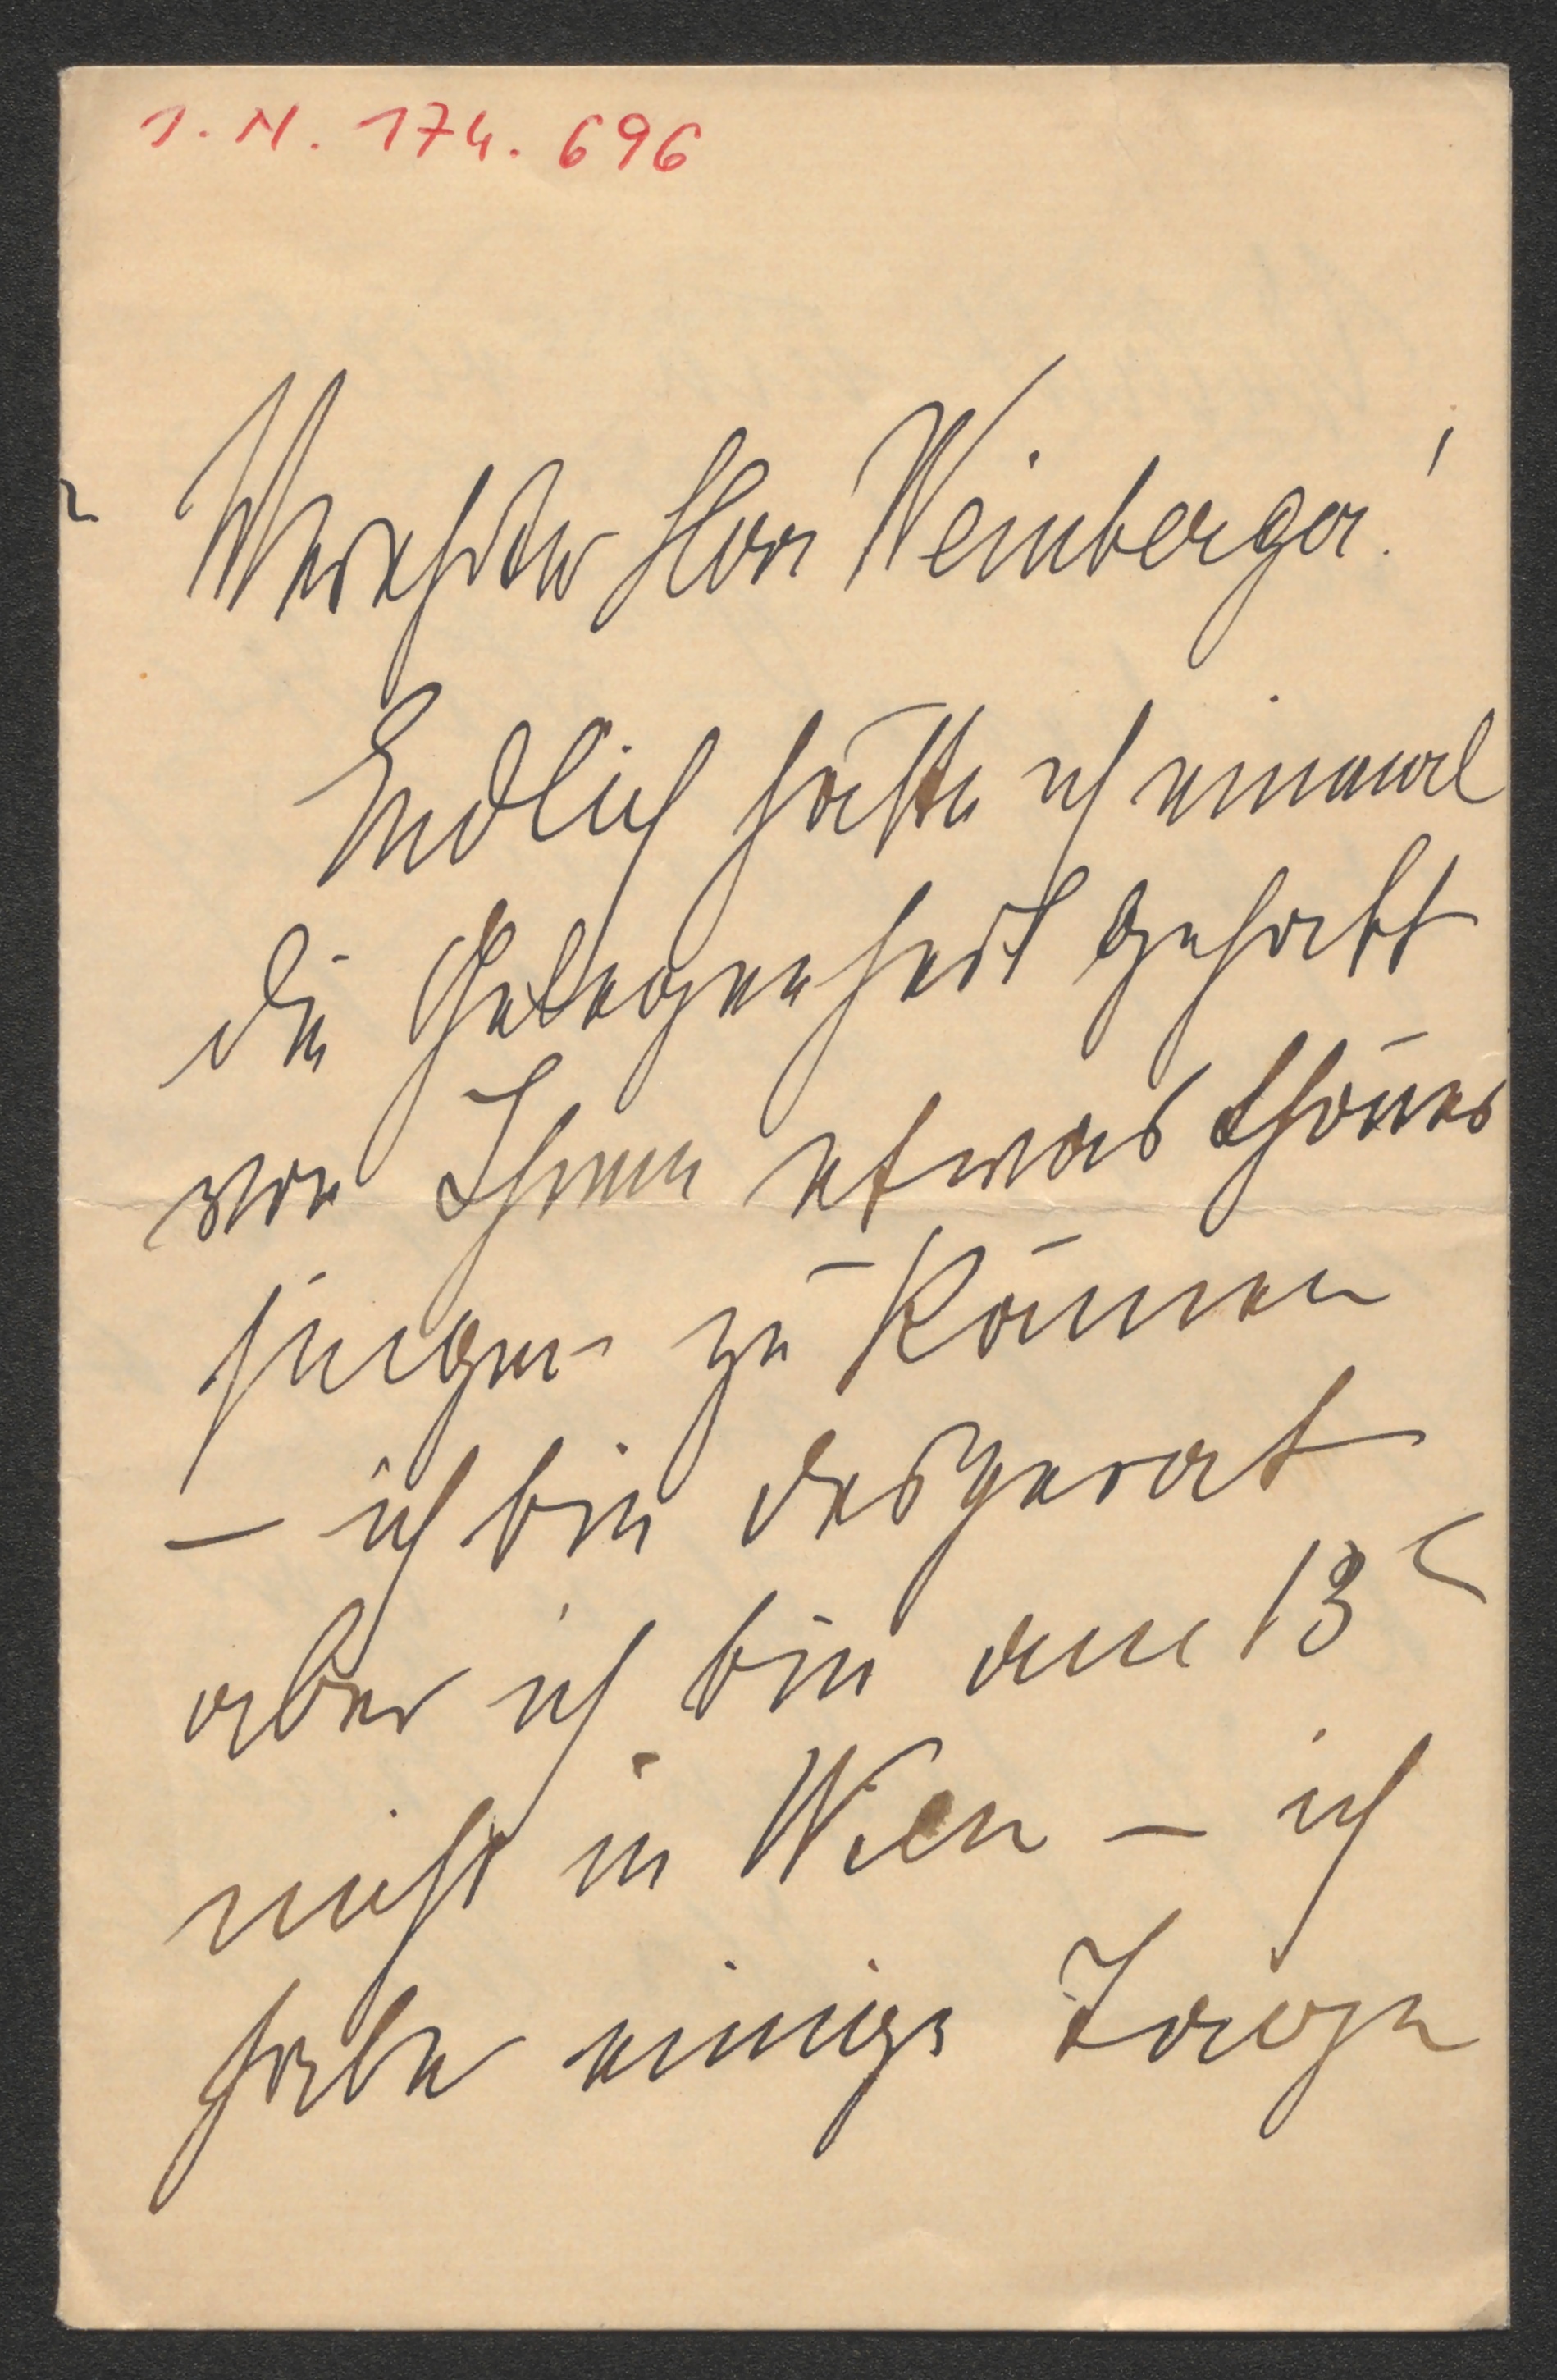 I. N. 174.696
Verehrter Herr Weinberger!
Endlich hätte ich einmal
die Gelegenheit gehabt
von Ihnen etwas schönes
singen zu können
– ich bin desperat
aber ich bin am 13
nicht in Wien – ich
habe einige Tage